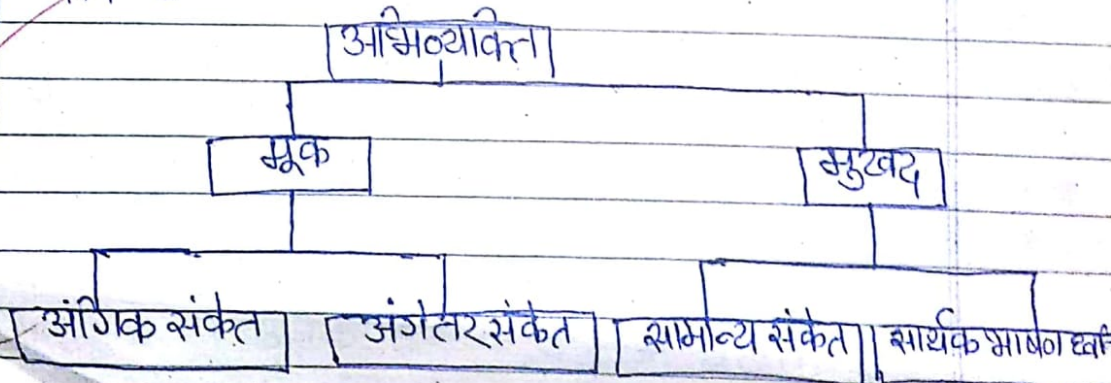 अभिव्यक्ति
मूक मुखद
अंगिक संकेत अंगेतर संकेत सामान्य संकेत सार्थक भाषण